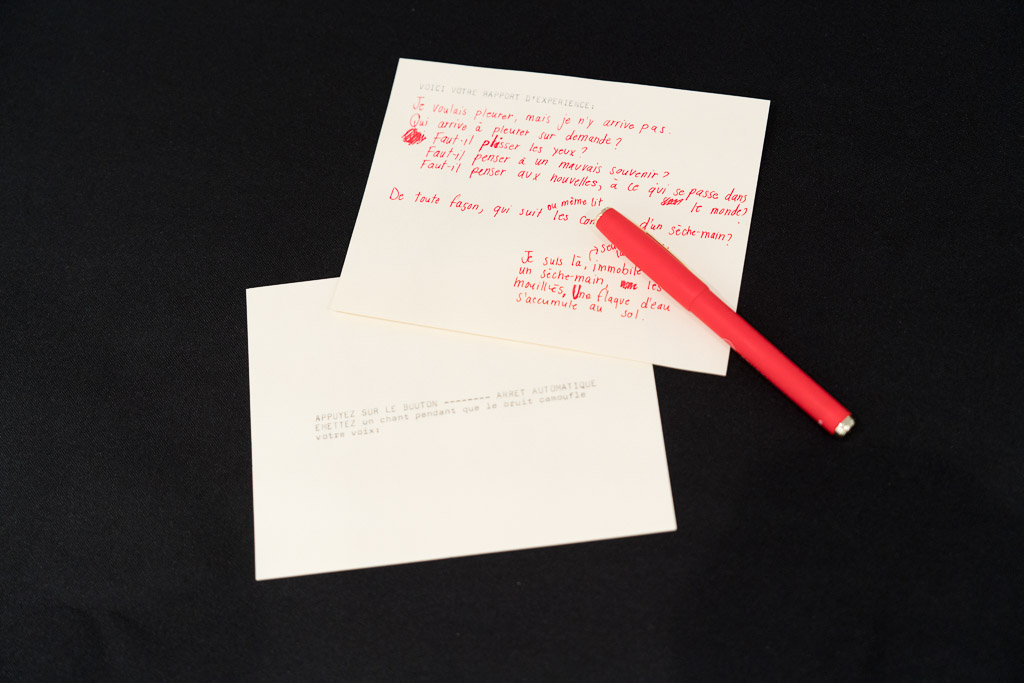 VOICI VOTRE RAPPORT D'EXPERIENCE:
Je voulais pleurer, mais je n'y arrive pas.
Qui arrive à pleurer sur demande?
Faut-il plisser les yeux?
Faut-il penser à un mauvais souvenir?
Faut-il penser aux nouvelles, à ce qui se passe dans
le monde?
ou même lit
De toute façon, qui suit les d'un sèche-main?
Je suis là, immobile
un sèche-main, les
mouillés, Une flaque d'eau
s'accumule au sol.
APPUYEZ SUR LE BOUTON -------- ARRET AUTOMATIQUE
EMETTEZ un chant pendant que le bruit camoufle
votre voix: